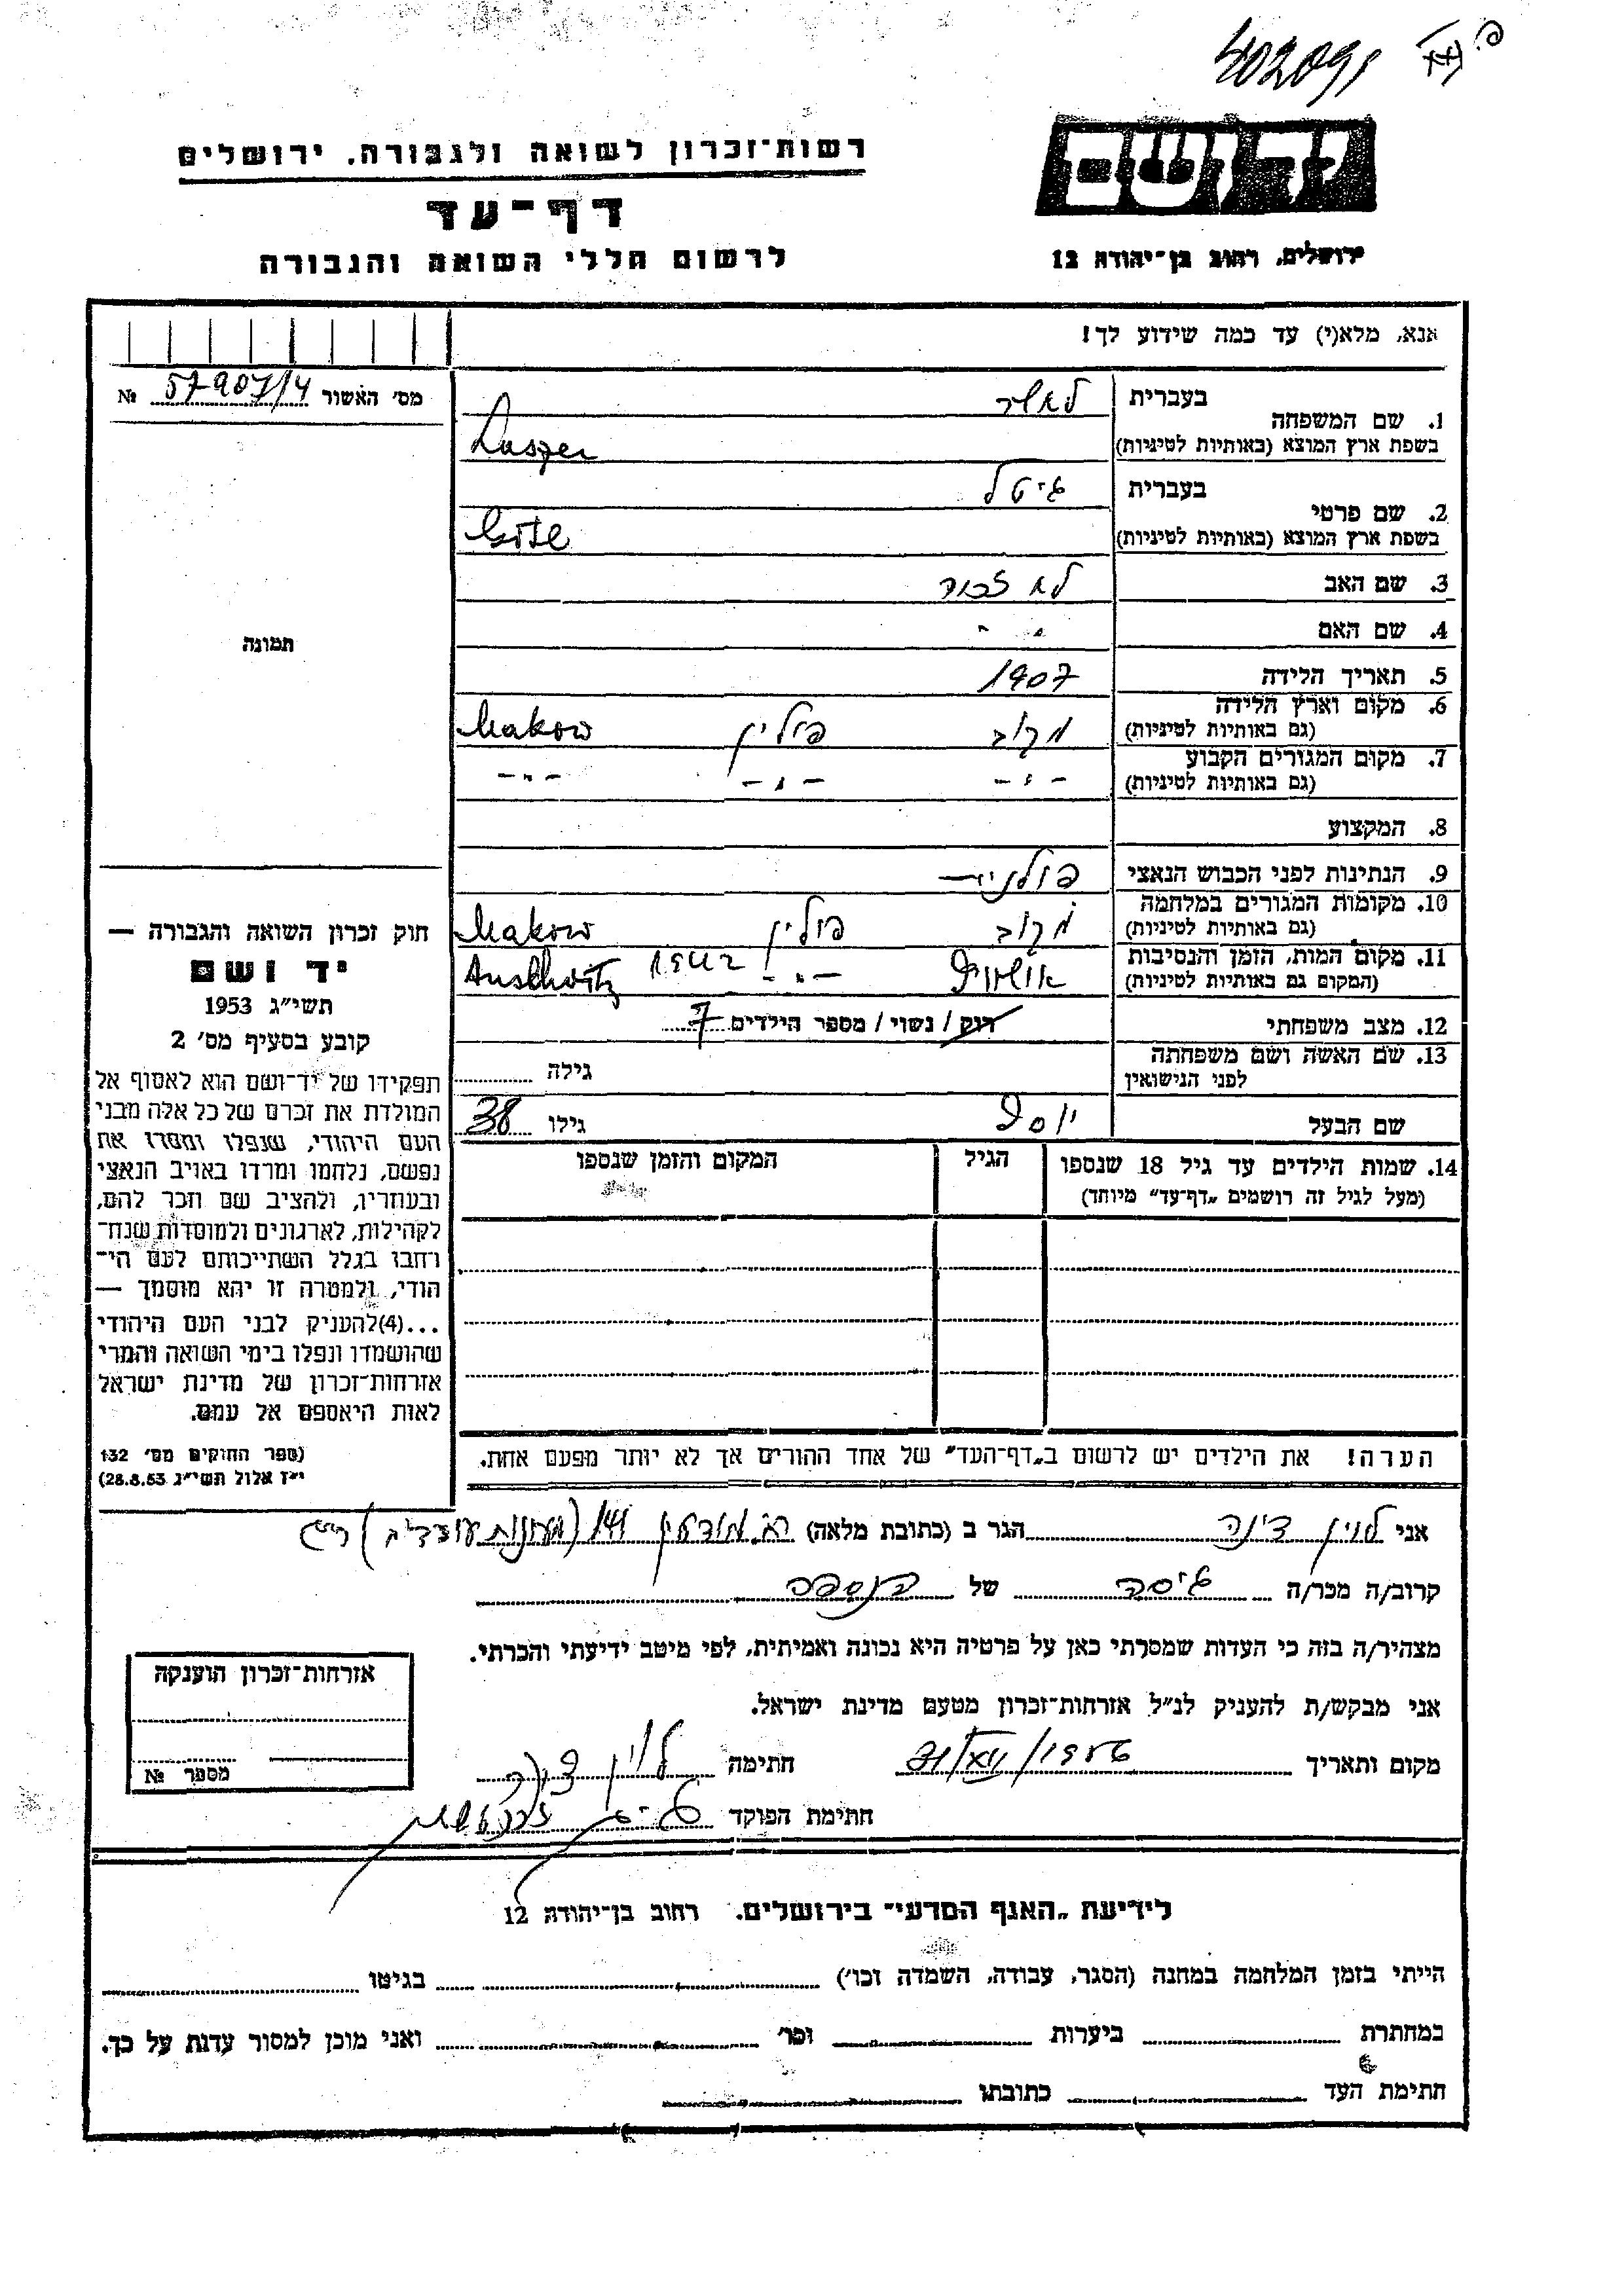 402091
יד ושם
רשות־זכרון לשואה ולגבורה, ירושלים
דף־עד
לרשום חללי השואה והגבורה
ירושלים, רחוב בן־יהודה 12
אנא, מלא(י) עד כמה שידוע לך!
מס׳ האשור 57907/4 №
תמונה
1. שם המשפחה
בעברית לאשר
בשפת ארץ המוצא (באותיות לטיניות) Laszer
2. שם פרטי
בעברית גיטל
בשפת ארץ המוצא (באותיות לטיניות)
3. שם האב לא זכור
4. שם האם - " -
5. תאריך הלידה 1907
6. מקום וארץ הלידה מקוב פולין Makow
(גם באותיות לטיניות)
7. מקום המגורים הקבוע - " - - " - - " -
(גם באותיות לטיניות)
8. המקצוע
9. הנתינות לפני הכבוש הנאצי פולנית
10. מקומות המגורים במלחמה מקוב פולין Makow
(גם באותיות לטיניות)
11. מקום המות, הזמן והנסיבות אושוויץ - " - 1942 Auschwitz
(המקום גם באותיות לטיניות)
12. מצב משפחתי רווק / נשוי / מספר הילדים 7
13. שם האשה ושם משפחתה
לפני הנישואין
גילה
שם הבעל יוסף גילו 38
14. שמות הילדים עד גיל 18 שנספו הגיל המקום והזמן שנספו
(מעל לגיל זה רושמים „דף־עד״ מיוחד)
הערה! את הילדים יש לרשום ב„דף־העד״ של אחד ההורים אך לא יותר מפעם אחת.
חוק זכרון השואה והגבורה —
יד ושם
תשי״ג 1953
קובע בסעיף מס׳ 2
תפקידו של יד־ושם הוא לאסוף אל
המולדת את זכרם של כל אלה מבני
העם היהודי, שנפלו ומסרו את
נפשם, נלחמו ומרדו באויב הנאצי
ובעוזריו, ולהציב שם וזכר להם,
לקהילות, לארגונים ולמוסדות שנח־
רחבו בגלל השתייכותם לעם הי־
הודי, ולמטרה זו יהא מוסמך —
...(4) להעניק לבני העם היהודי
שהושמדו ונפלו בימי השואה והמרי
אזרחות־זכרון של מדינת ישראל
לאות היאספם אל עמם.
(ספר החוקים מס׳ 132
י״ז אלול תשי״ג 28.8.53)
אני לוין דינה הגר ב (כתובת מלאה) מודיעין 141
קרוב/ה מכר/ה גיסה של הנספה
מצהיר/ה בזה כי העדות שמסרתי כאן על פרטיה היא נכונה ואמיתית, לפי מיטב ידיעתי והכרתי.
אני מבקש/ת להעניק לנ״ל אזרחות־זכרון מטעם מדינת ישראל.
מקום ותאריך חתימה לוין דינה
חתימת הפוקד
אזרחות־זכרון הוענקה
מספר №
לידיעת „האגף המדעי״ בירושלים, רחוב בן־יהודה 12
הייתי בזמן המלחמה במחנה (הסגר, עבודה, השמדה וכו׳) בגיטו
במחתרת ביערות וכו׳ ואני מוכן למסור עדות על כך.
חתימת העד כתובתו